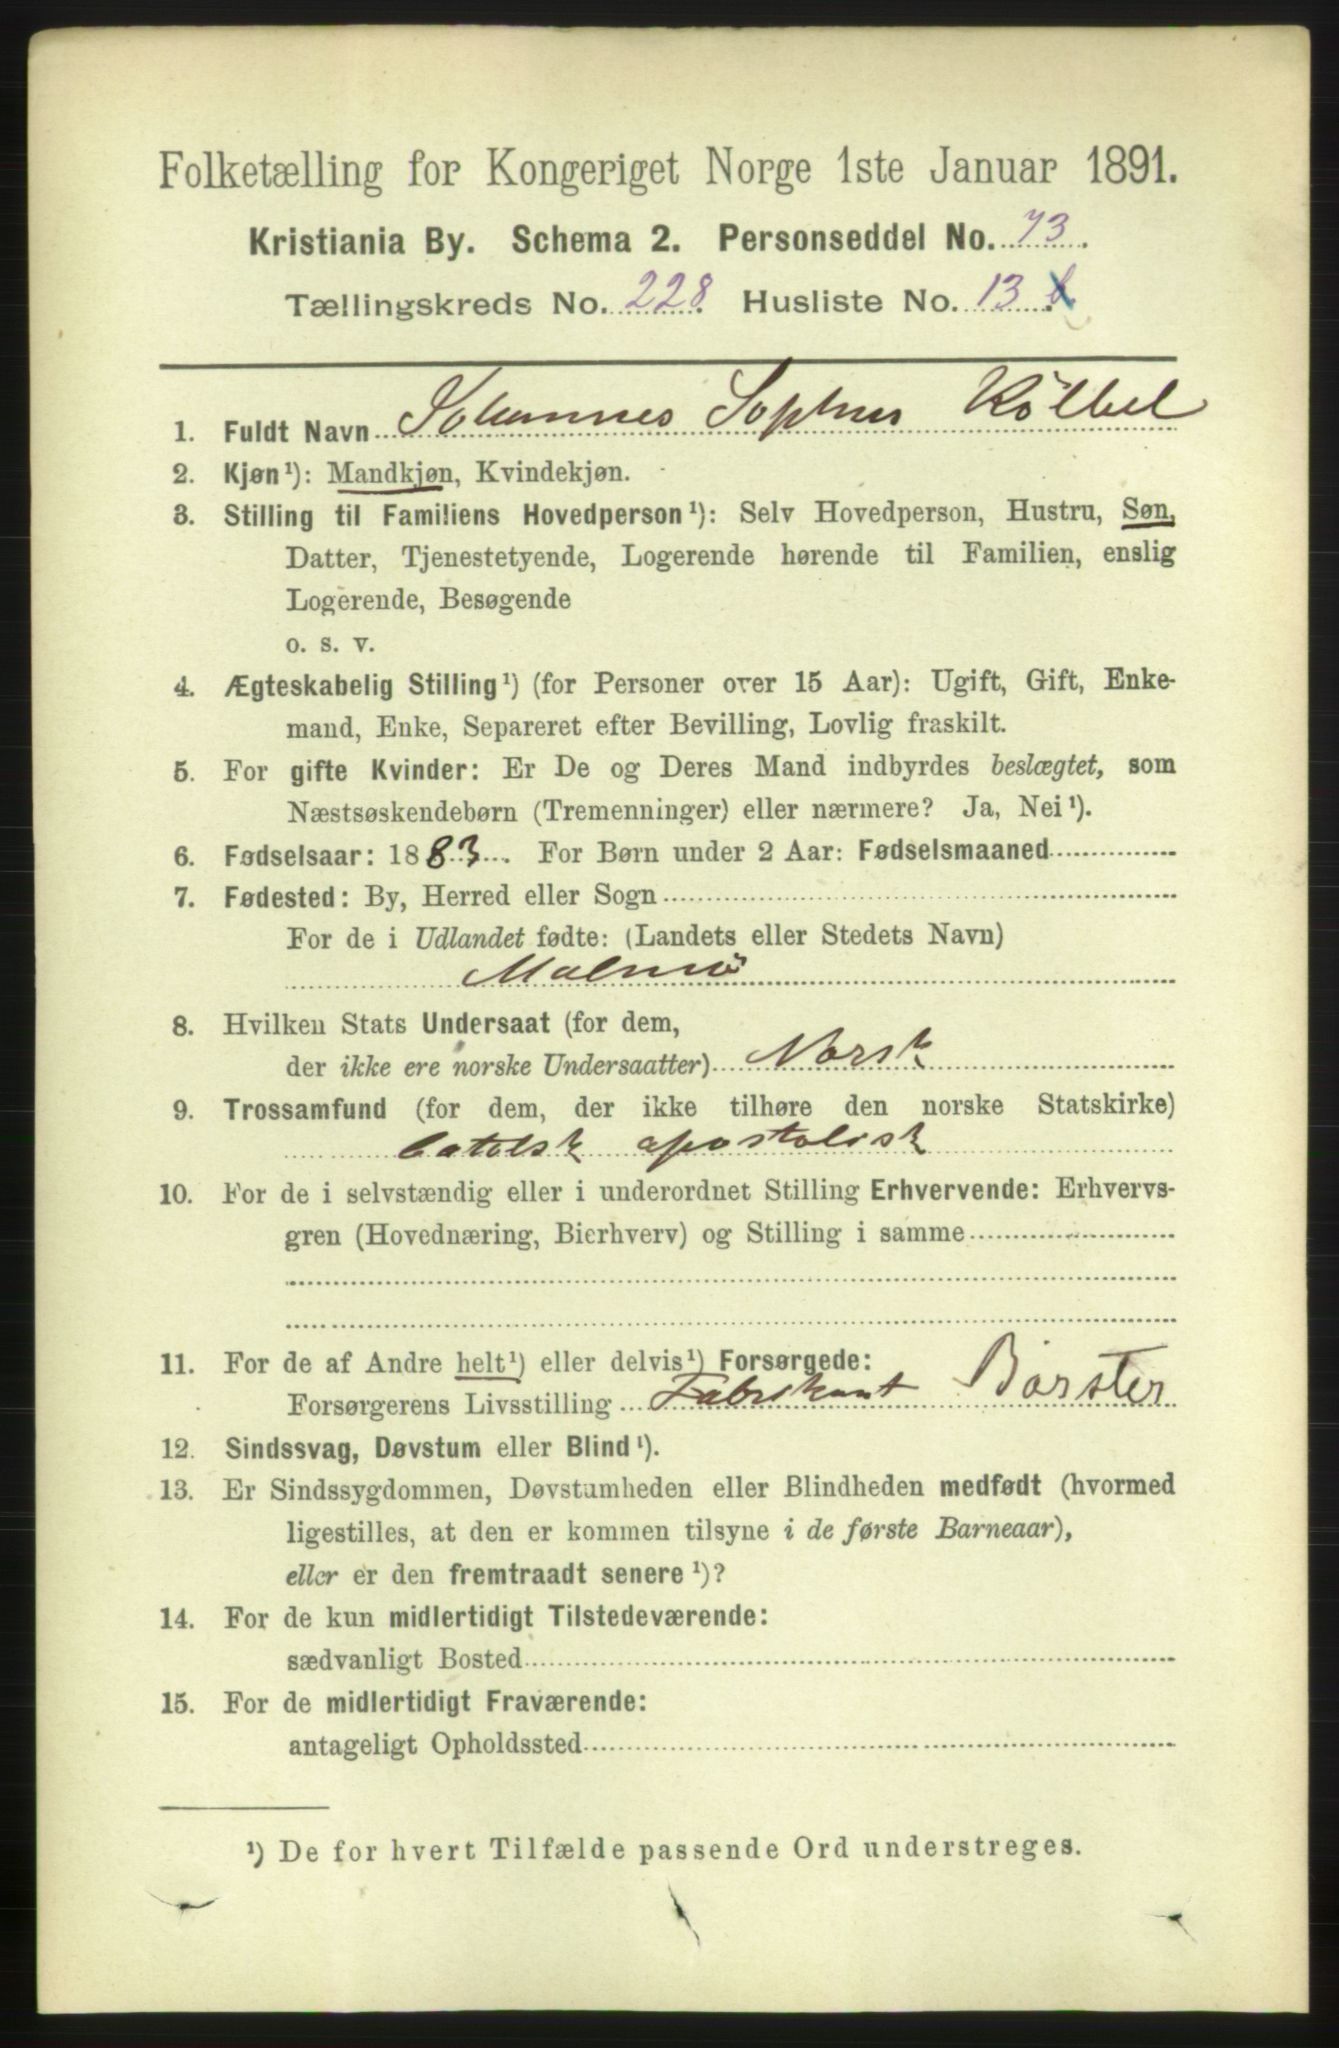 Folketælling for Kongeriget Norge 1ste Januar 1891.
Kristiania By. Schema 2. Personseddel No. 73.
Tællingskreds No. 228. Husliste No. 13
1. Fuldt Navn Johannes Sophus Kölbel
2. Kjøn¹): Mandkjøn, Kvindekjøn.
3. Stilling til Familiens Hovedperson¹): Selv Hovedperson, Hustru, Søn,
Datter, Tjenestetyende, Logerende hørende til Familien, enslig
Logerende, Besøgende
o. s. v.
4. Ægteskabelig Stilling¹) (for Personer over 15 Aar): Ugift, Gift, Enke-
mand, Enke, Separeret efter Bevilling, Lovlig fraskilt.
5. For gifte Kvinder: Er De og Deres Mand indbyrdes beslægtet, som
Næstsøskendebørn (Tremenninger) eller nærmere? Ja, Nei¹).
6. Fødselsaar: 1883. For Børn under 2 Aar: Fødselsmaaned
7. Fødested: By, Herred eller Sogn
For de i Udlandet fødte: (Landets eller Stedets Navn)
Malmö
8. Hvilken Stats Undersaat (for dem,
der ikke ere norske Undersaatter) Norsk
9. Trossamfund (for dem, der ikke tilhøre den norske Statskirke)
Catolsk apostolisk
10. For de i selvstændig eller i underordnet Stilling Erhvervende: Erhvervs-
gren (Hovednæring, Bierhverv) og Stilling i samme
11. For de af Andre helt¹) eller delvis¹) Forsørgede:
Forsørgerens Livsstilling Fabrikant Börster
12. Sindssvag, Døvstum eller Blind¹).
13. Er Sindssygdommen, Døvstumheden eller Blindheden medfødt (hvormed
ligestilles, at den er kommen tilsyne i de første Barneaar),
eller er den fremtraadt senere¹)?
14. For de kun midlertidigt Tilstedeværende:
sædvanligt Bosted
15. For de midlertidigt Fraværende:
antageligt Opholdssted
¹) De for hvert Tilfælde passende Ord understreges.